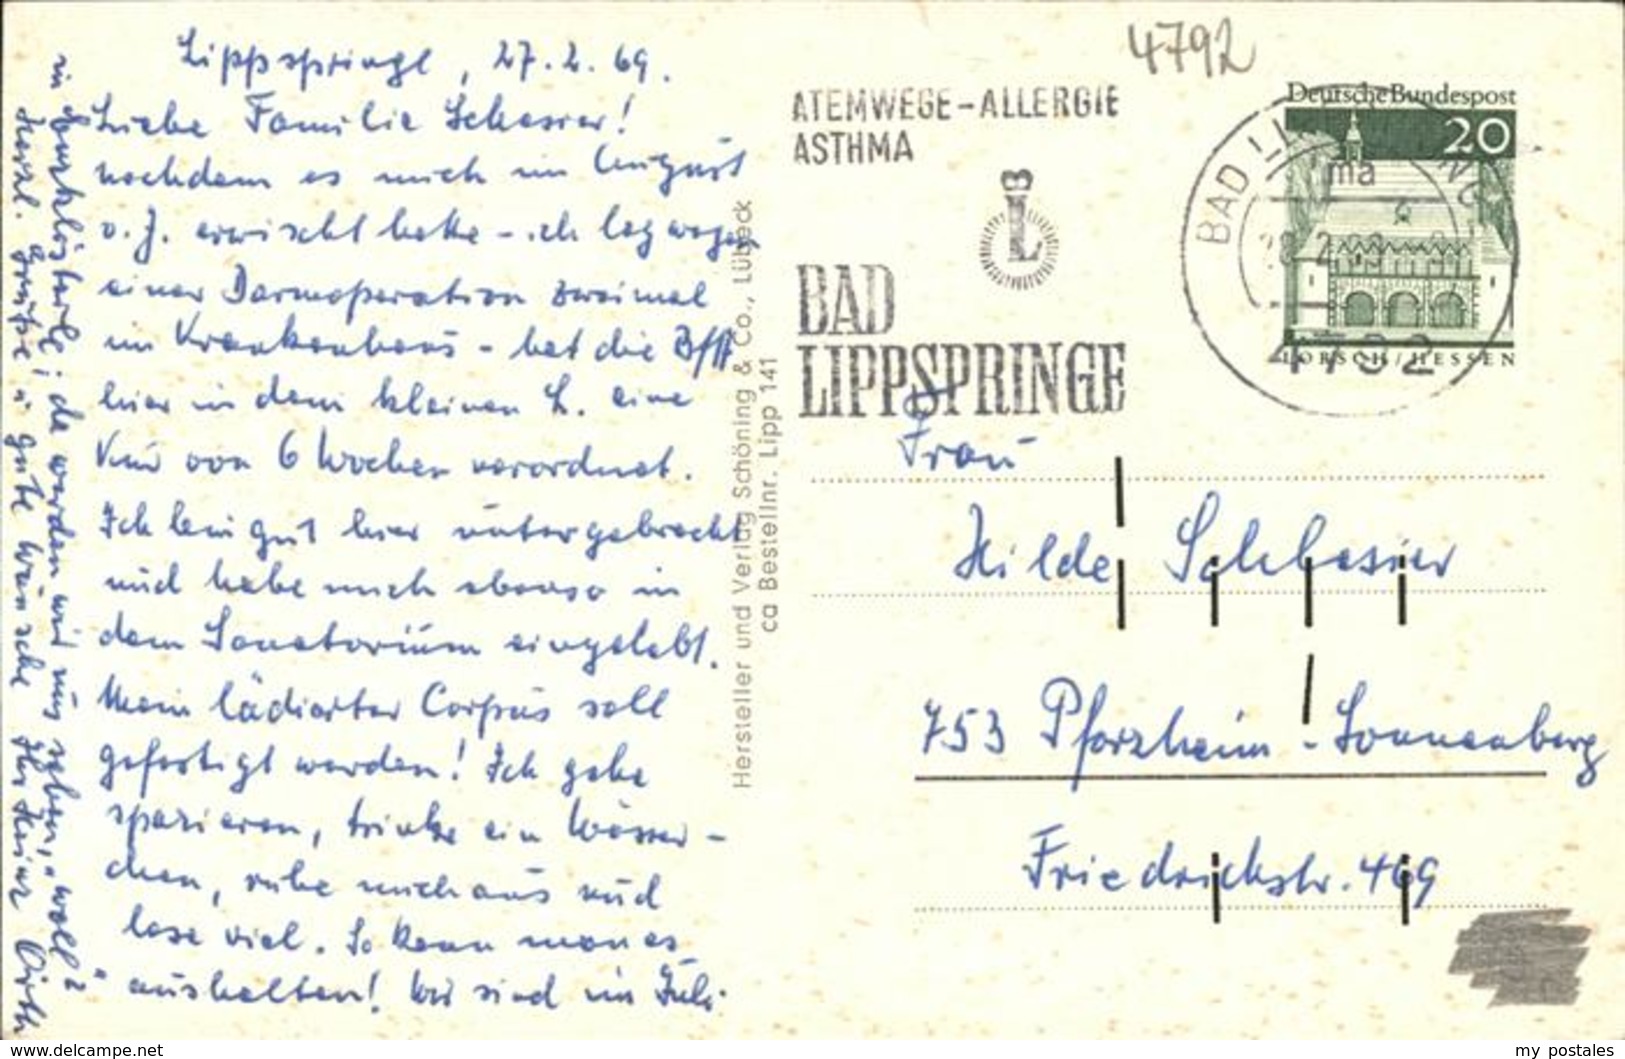 Lippspringe, 27.2.69.
Liebe Familie
nachdem es mich im August
v. J. erwischt hatte - ich lag wegen
einer Darmoperation zweimal
im Krankenhaus - hat die BfA
hier in dem kleinen L. eine
Kur von 6 Wochen verordnet.
Ich bin gut hier untergebracht
und habe mich ebenso in
dem Sanatorium eingelebt.
Mein lädierter Corpus soll
gefestigt werden! Ich gehe
spazieren, trinke ein Wässer-
chen, ruhe mich aus und
lese viel. So kann man es
"aushalten"! Wir sind im Juli
in; da werden wir uns sehen, woll?
Herzl. Grüße u. gute Wünsche Ihr Heinz
4792
ATEMWEGE-ALLERGIE
ASTHMA
L
BAD
LIPPSPRINGE
Deutsche Bundespost
20
LORSCH/HESSEN
BAD LI
ma
Frau
Hilde
753 Pforzheim-Sonnenberg
Friedrichstr. 469
Hersteller und Verlag Schöning & Co., Lübeck
ca Bestellnr. Lipp 141
www.delcampe.net
my postales